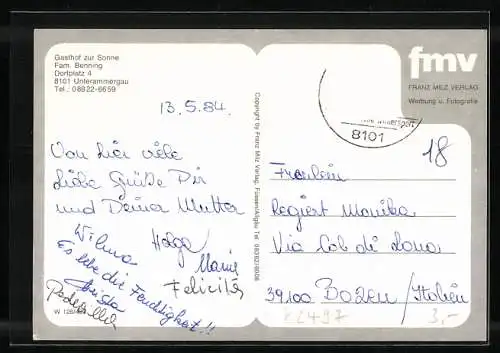 Gasthof zur Sonne
Fam. Benning
Dorfplatz 4
8101 Unterammergau
Tel.: 08822-6659
13.5.84.
Von hier viele
liebe Grüße Dir
und Deiner Mutter
Wilma Helga
Marie
Es lebe die Feuchtigkeit!!
Christa
Felicitas
W 128
Copyright by Franz Milz Verlag, Füssen/Allgäu Tel. 08362/6006
fmv
FRANZ MILZ VERLAG
Werbung u. Fotografie
8101
18
Fräulein
Regiert Monika
Via Col di Lana
39100 Bozen / Italien
2497
3,-